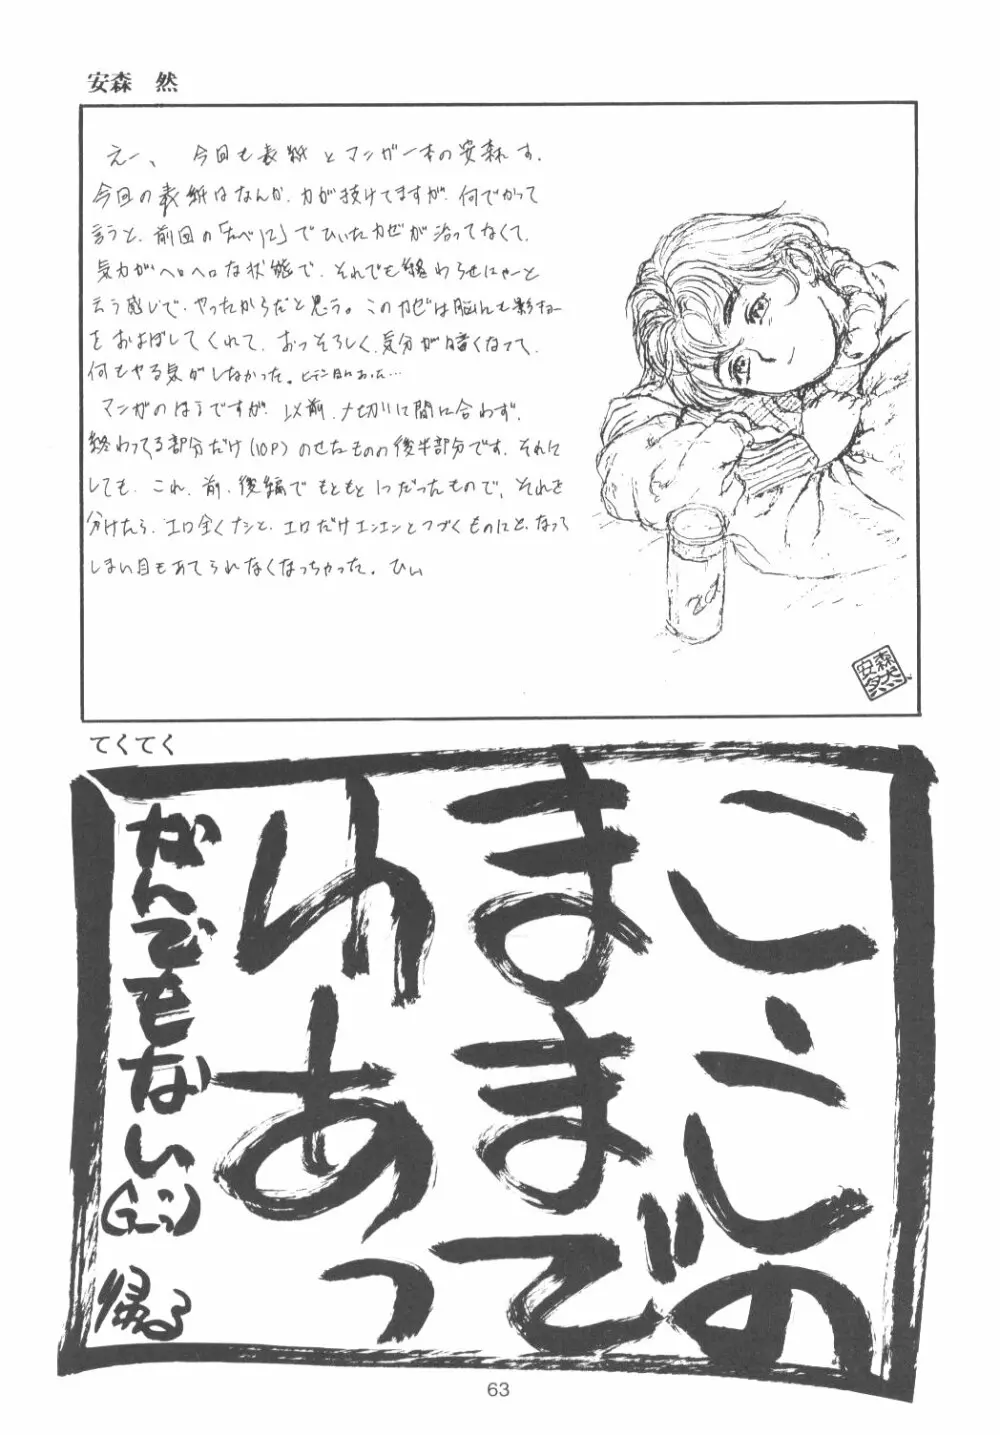 安森 然
えー、今回も表紙とマンガ一本の安森れす.
今回の表紙はなんか、力が抜けてますが、何でかって
言うと、前回の「たべに」でひいたカゼが治ってなくて、
気力がヘロヘロな状態で、それでも終わらせにゃーと
云う感じで、やったからだと思う。このカゼは脳にも影きょー
をおよぼしてくれて、おっそろしく、気分が暗くなって、
何もやる気がしなかった。
マンガのほうですが、以前、〆切りに間に合わず、
終わってる部分だけ(10P)のせたものの後半部分です。それに
しても、これ、前、後編でもともと1つだったもので、それを
分けたら、エロ全くナシと、エロだけエンエンとつづくものにと、なって
しまい目もあてられなくなっちゃった。ひぃ
安森然
てくてく
こ、この
ままで
いいわあっ
なんでもない
帰る
63